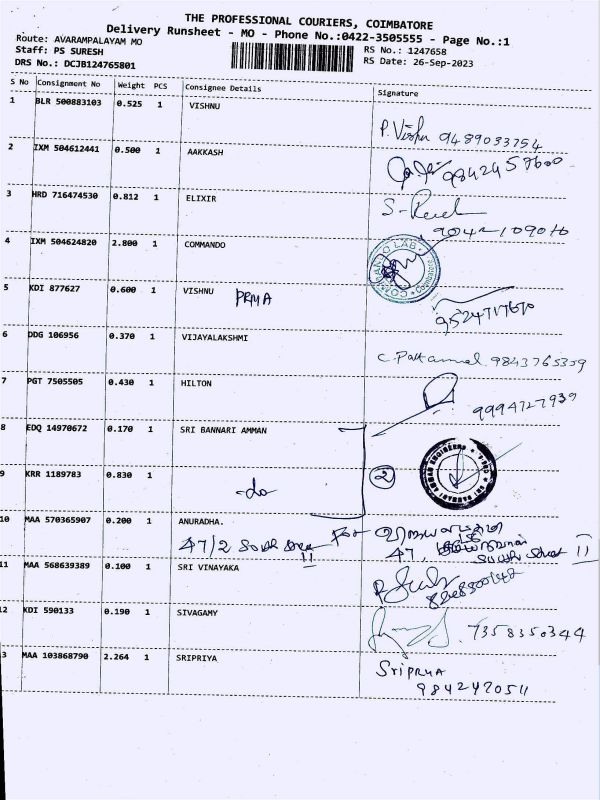 THE PROFESSIONAL COURIERS, COIMBATORE
Delivery Runsheet - MO - Phone No.:0422-3505555 - Page No.:1
Route: AVARAMPALAYAM MO
RS No.: 1247658
Staff: PS SURESH
RS Date: 26-Sep-2023
DRS No.: DCJB124765801
S No Consignment No Weight PCS Consignee Details Signature
1 BLR 500883103 0.525 1 VISHNU
P. Vishnu 9489033754
2 IXM 504612441 0.500 1 AAKKASH
9842457600
3 HRD 716474530 0.812 1 ELIXIR
9042109010
4 IXM 504624820 2.800 1 COMMANDO
COMMANDO LAB Coimbatore
5 KDI 877627 0.600 1 VISHNU PRMA
6 DDG 106956 0.370 1 VIJAYALAKSHMI
C. Pattammal. 9843765359
7 PGT 7505505 0.430 1 HILTON
9994727939
8 EDQ 14970672 0.170 1 SRI BANNARI AMMAN
SRI BANNARI AMMAN ENGINEERS
9 KRR 1189783 0.830 1 -do 2
10 MAA 570365907 0.200 1 ANURADHA.
47/2 South for
47, South Street
11 MAA 568639389 0.100 1 SRI VINAYAKA
12 KDI 590133 0.190 1 SIVAGAMY
7358350344
3 MAA 103868790 2.264 1 SRIPRIYA
Sriprya
9842470511